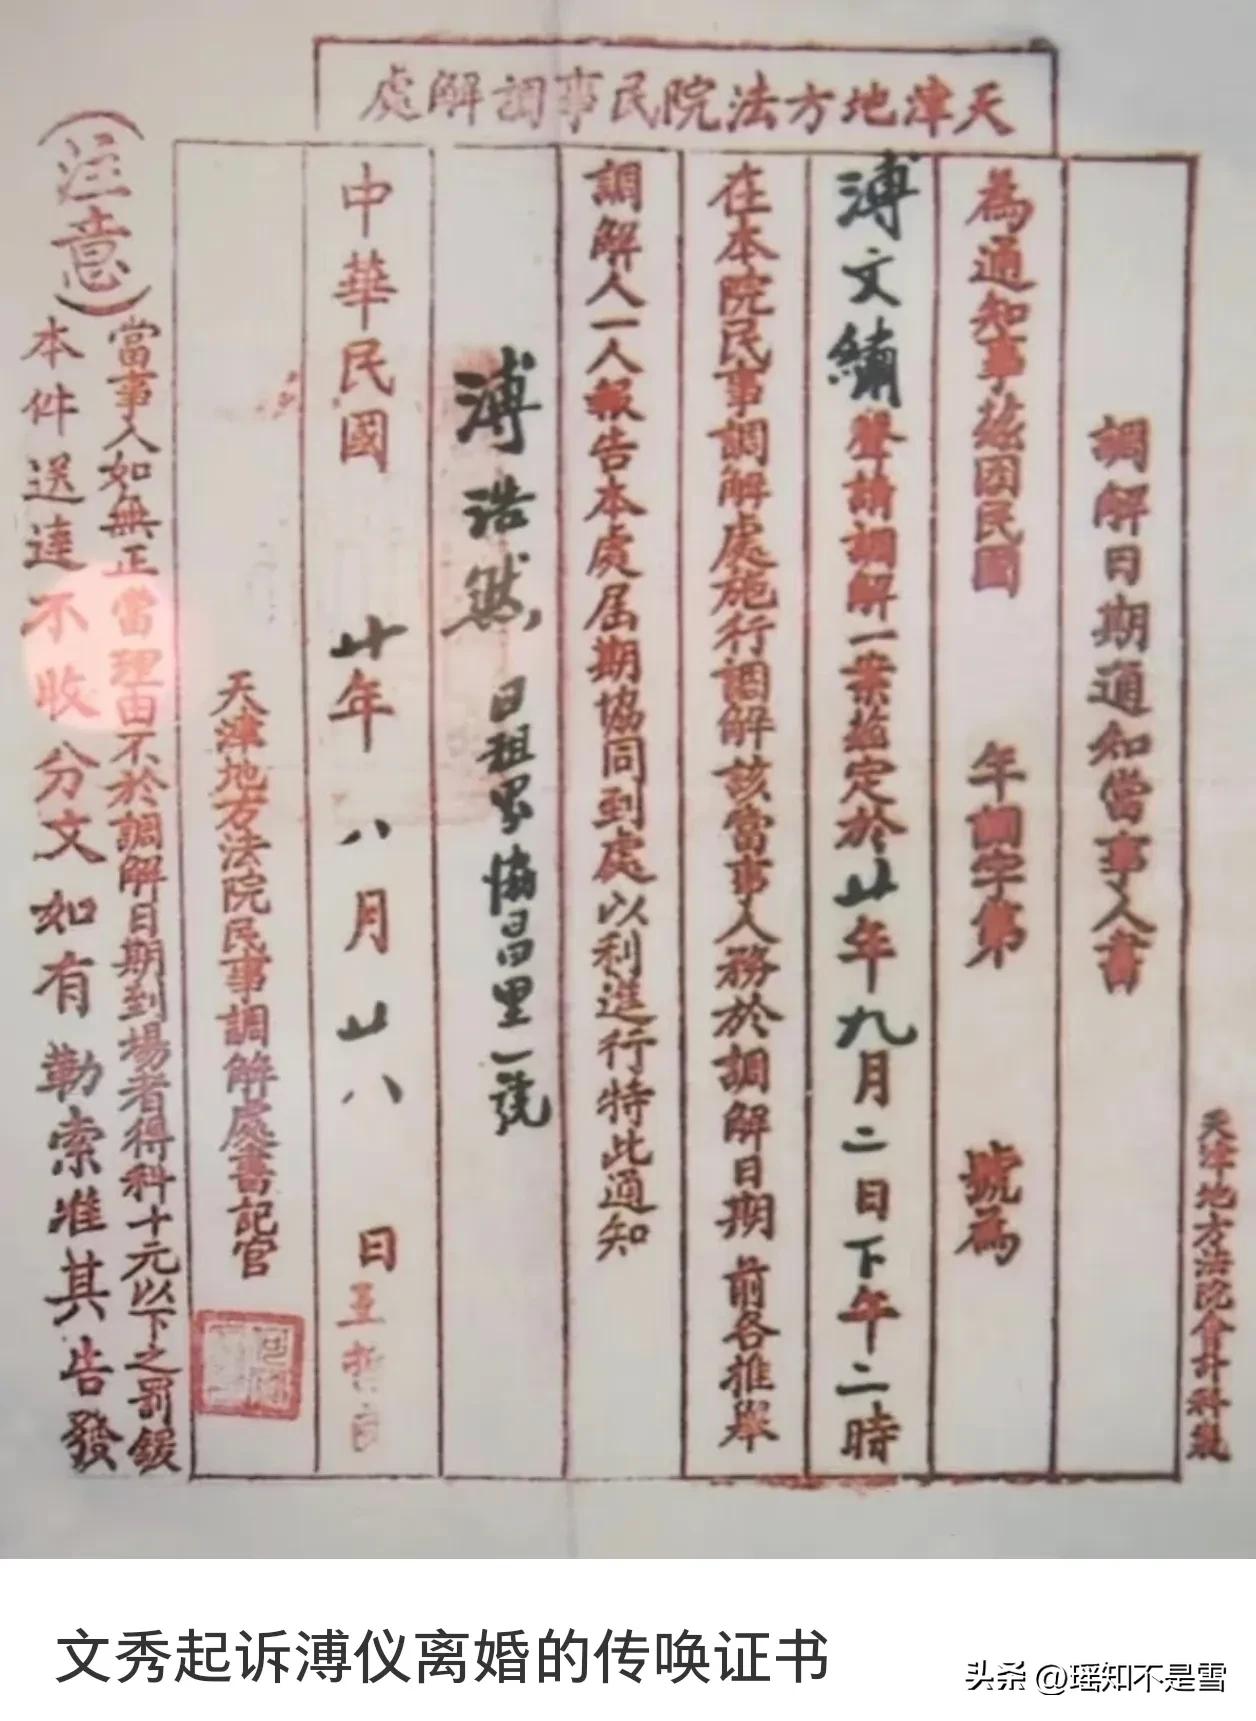 天津地方法院民事調解處
天津地方法院會計科製
調解日期通知當事人書
為通知事茲因民國 年調字第 號為
溥文繡聲請調解一案茲定於廿年九月二日下午二時
在本院民事調解處施行調解該當事人務於調解日期前各推舉
調解人一人報告本處屆期協同到處以利進行特此通知
溥浩然 日租界協昌里一號
中華民國 廿年 八月 廿八 日
天津地方法院民事調解處書記官
(注意)
當事人如無正當理由不於調解日期到場者得科十元以下之罰鍰
本件送達不收分文如有勒索准其告發
文秀起诉溥仪离婚的传唤证书
头条 @瑶知不是雪